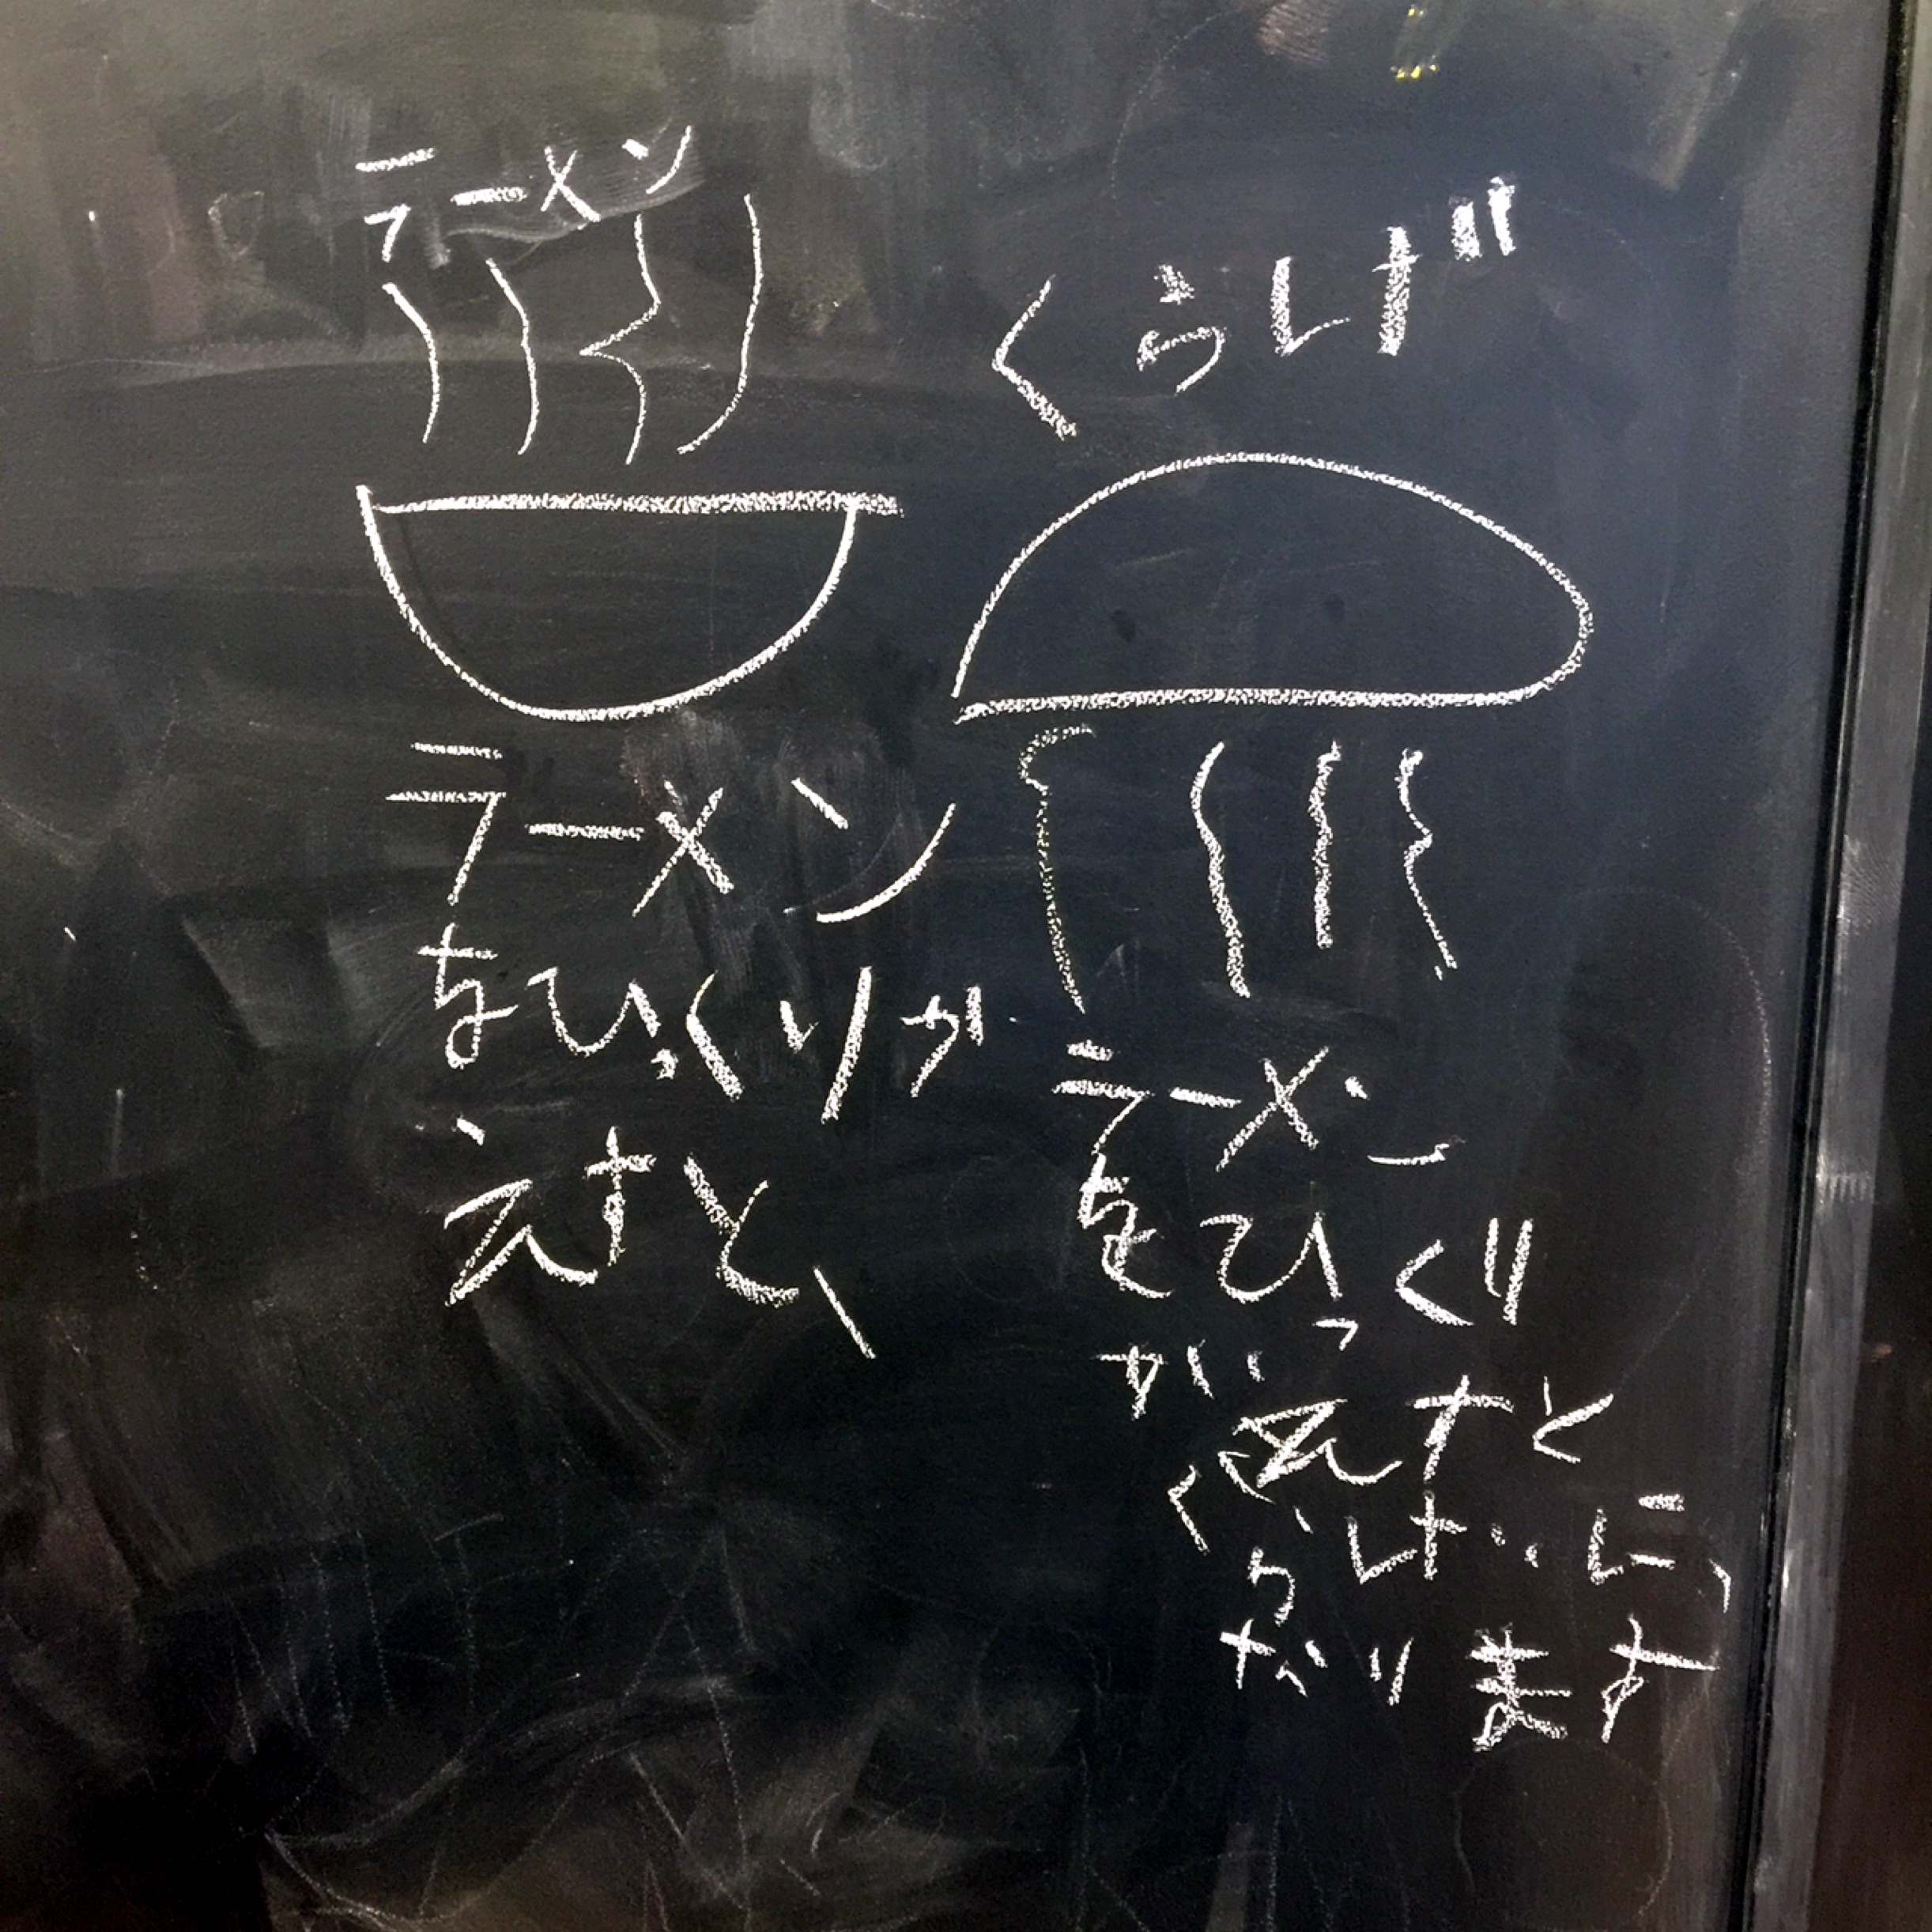 ラーメン
ラーメン
をひっくりが
えすと、
くらげ
ラーメン
をひっくり
がえすと
くらげに
なります